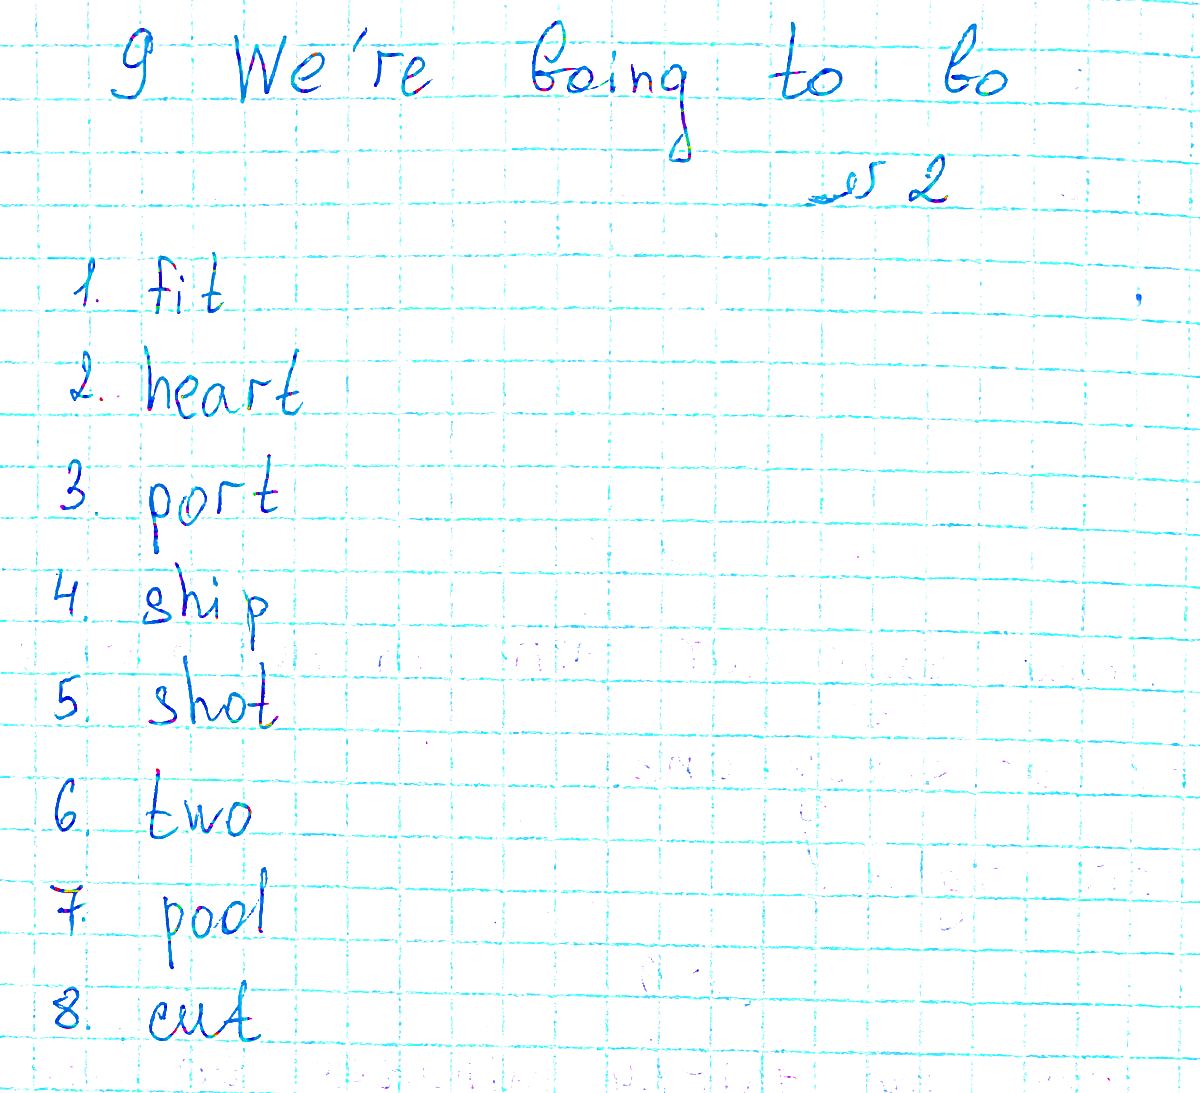 9 We're Going to Go
№ 2
1. fit
2. heart
3. port
4. ship
5. shot
6. two
7. pool
8. cut